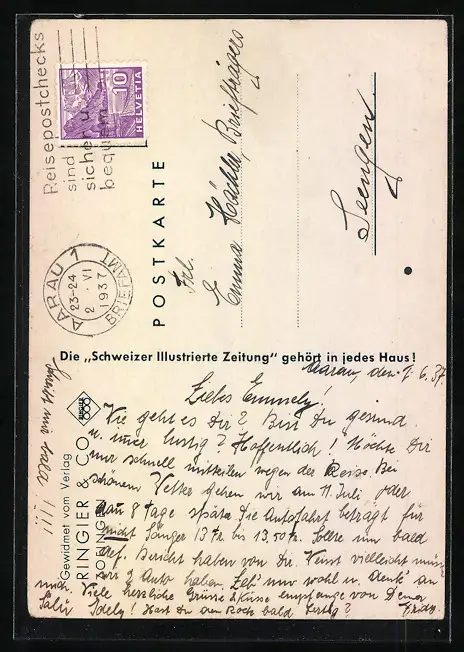 Reisepostchecks
sind
sicher u.
bequem
10
HELVETIA
AARAU 1
23-24
2. VI
1937
BRIEFAMT
POSTKARTE
Frl.
Emma Hächler Briefträgers
Seengen
Die „Schweizer Illustrierte Zeitung" gehört in jedes Haus!
Gewidmet vom Verlag
RINGIER & CO.
ZOFINGEN
Aarau, den 6. 37.
Liebes Emmely!
Wie geht es Dir? Bist Du gesund
u. immer lustig? Hoffentlich! Möchte Dir
nur schnell mitteilen wegen der Reise. Bei
schönem Wetter gehen wir am 11. Juli oder
8 Tage später. Die Autofahrt beträgt für
nicht Sänger 13 Fr. bis 13.50 Fr. Sollte nun bald
def. Bericht haben von Dir. Sonst vielleicht müssen
wir 2 Auto haben. Leb' nun wohl u. denk' an
mich. Viele herzliche Grüsse & Küsse empfange von Deiner
Frida
Salü Idely! Hast Du den Rock bald fertig?